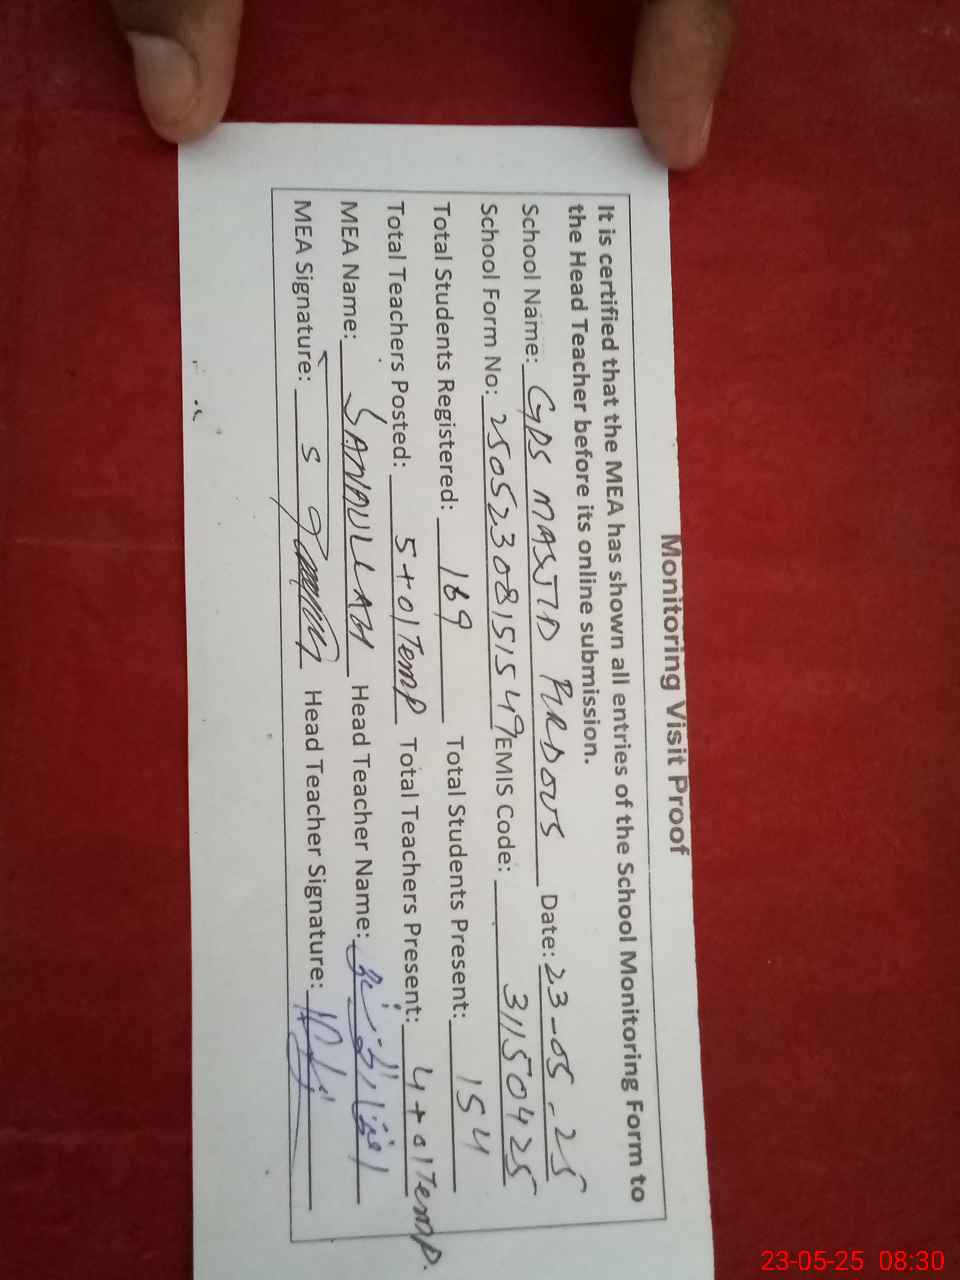 Monitoring Visit Proof
It is certified that the MEA has shown all entries of the School Monitoring Form to
the Head Teacher before its online submission.
School Name: GPS MASJID FIRDOUS Date: 23-05-25
School Form No: 25052308151549 EMIS Code: 31150425
Total Students Registered: 169 Total Students Present: 154
Total Teachers Posted: 5+01Temp Total Teachers Present: 4+01Temp.
MEA Name: SANAULLAH Head Teacher Name:
MEA Signature: Head Teacher Signature:
23-05-25 08:30